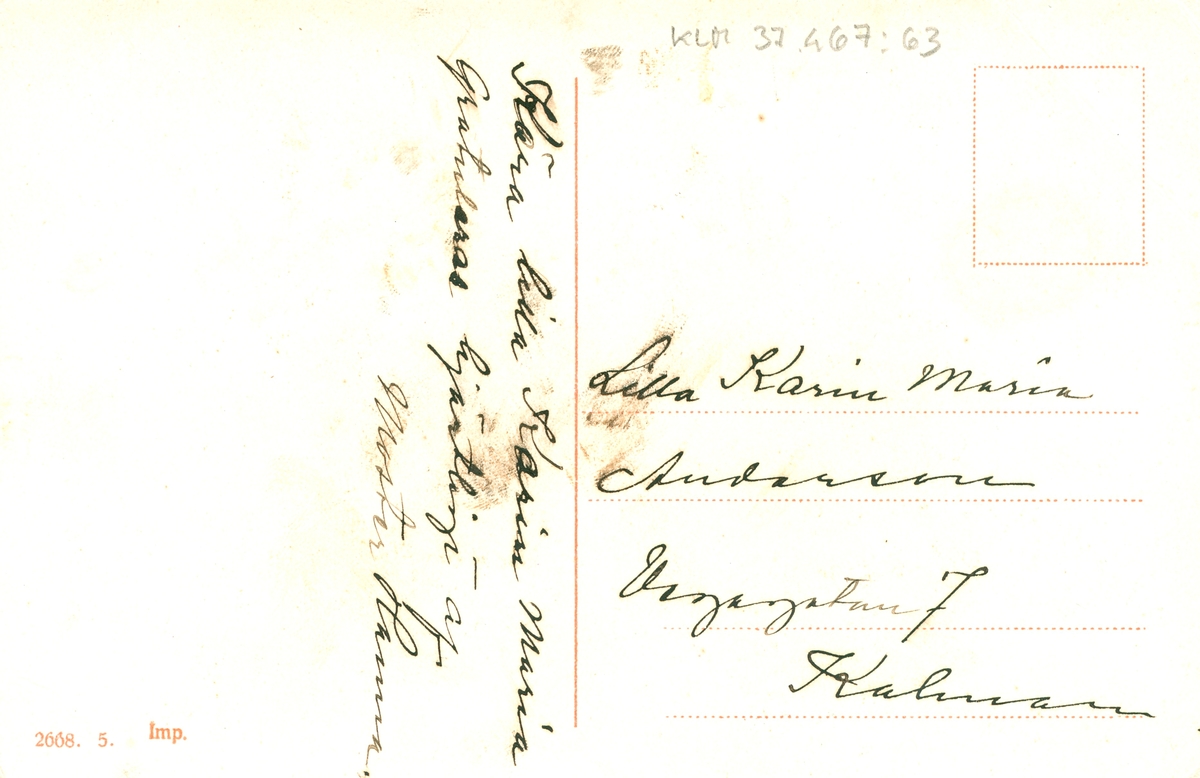 KLM 37.467:63
Kära lilla Karin Maria
Gratuleras hjärtligt af
Moster Hanna.
Lilla Karin Maria
Anderson
Vegagatan 7
Kalmar
2608. 5. Imp.